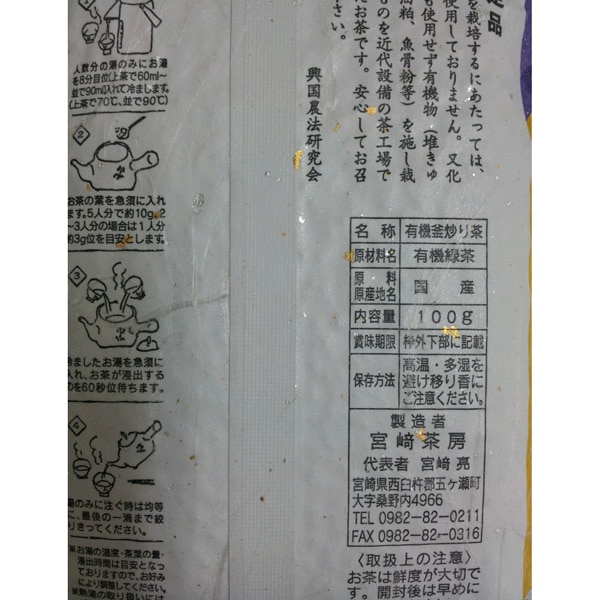 人数分の湯のみにお湯
を8分目位(上茶で60ml〜
並で90ml)入れて冷まします。
(上茶で70℃、並で90℃)
2
お茶の葉を急須に入れ
ます。5人分で約10g、2
〜3人分の場合は1人分
約3g位を目安とします。
3
冷ましたお湯を急須に
入れ、お茶が浸出する
のを60秒位待ちます。
4
湯のみに注ぐ時は均等
に、最後の一滴まで絞
りきってください。
※お湯の温度・茶葉の量・
浸出時間は目安となっ
ておりますので、お好み
により調整してください。
※熱湯の取り扱いには
品
を栽培するにあたっては、
使用しておりません。又化
も使用せず有機物(堆きゅ
油粕、魚骨粉等)を施し栽
ものを近代設備の茶工場で
たお茶です。安心してお召
さい。
興国農法研究会
名称 有機釜炒り茶
原材料名 有機緑茶
原料原産地名 国産
内容量 100g
賞味期限 枠外下部に記載
保存方法 高温・多湿を
避け移り香に
ご注意ください。
製造者
宮﨑茶房
代表者 宮﨑 亮
宮崎県西臼杵郡五ヶ瀬町
大字桑野内4966
TEL 0982-82-0211
FAX 0982-82-0316
〈取扱上の注意〉
お茶は鮮度が大切で
す。開封後は早めに